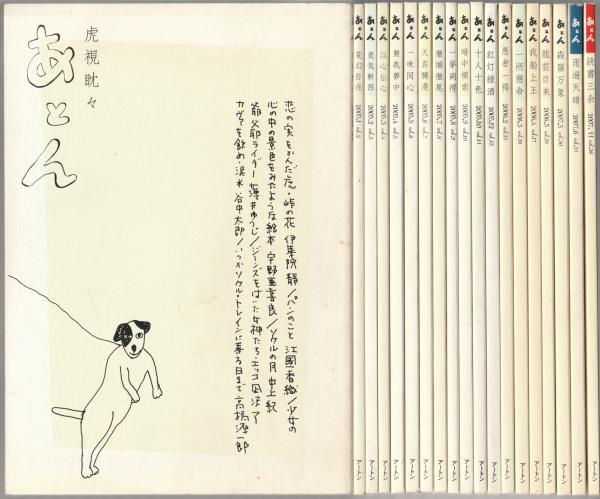 虎視眈々
あとん
恋の実をかんだ虎・峠の花 伊集院静／パンのこと 江國香織／少女の
心の中の景色をみたような絵本 宇野亜喜良／ソウルの月 中上紀
爺父爺ライダー 薄井ゆうじ／ジーンズをはいた女神たち・エッコ 凪沢了
カヴァを飲め・泥水 谷中太郎／いつかソウル・トレインに乗る日まで 高橋源一郎
あとん 変幻自在 2005.1 vol.2 アートン
あとん 意気軒昂 2005.2 vol.3 アートン
あとん 以心伝心 2005.3 アートン
あとん 無我夢中 2005.4 vol.5 アートン
あとん 一味同心 2005.5 vol.6 アートン
あとん 天真爛漫 2005.6 vol.7 アートン
あとん 徹頭徹尾 2005.7 アートン
あとん 一挙両得 2005.8 vol.9 アートン
あとん 暗中模索 2005.9 vol.10 アートン
あとん 十人十色 2005.10 vol.11 アートン
あとん 紅灯緑酒 2005.12 vol.13 アートン
あとん 愚者一得 2006.2 vol.15 アートン
あとん 一所懸命 2006.3 vol.16 アートン
あとん 我船上王 2006.4 vol.17 アートン
あとん 龍雲自来 2006.5 vol.18 アートン
あとん 森羅万象 2007.5 vol.30 アートン
あとん 雨過天晴 2007.6 vol.31 アートン
あとん 読書三余 2007.11 vol.36 アートン